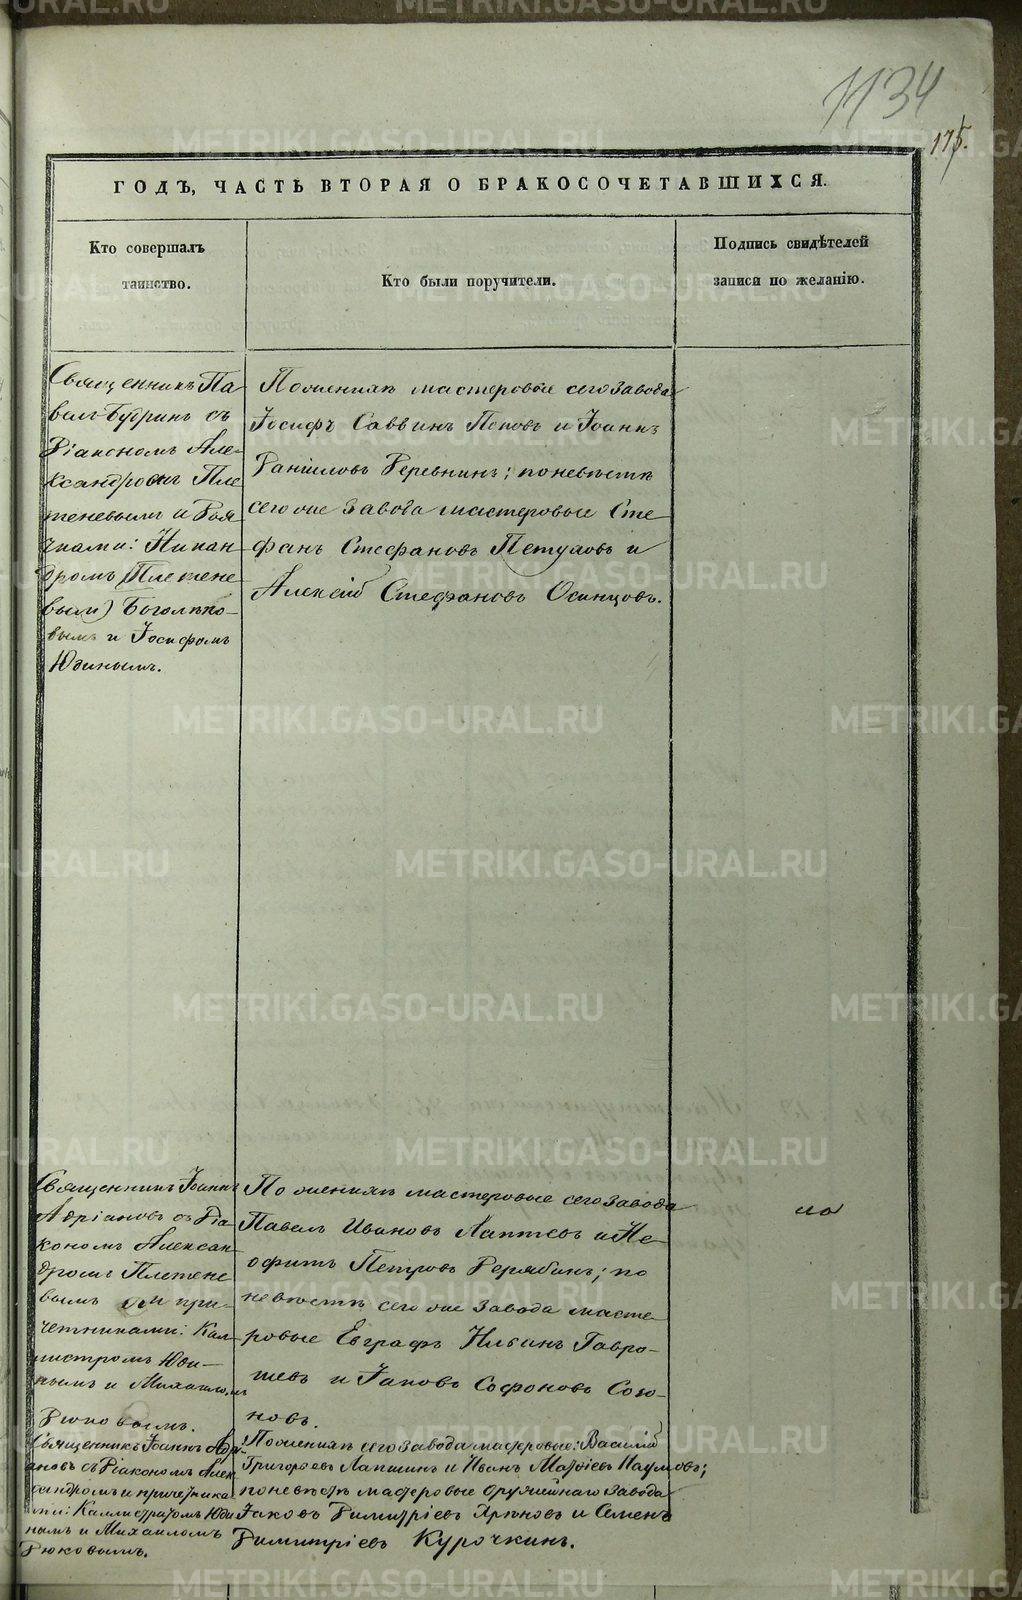 1134
175.
ГОДЪ, ЧАСТЬ ВТОРАЯ О БРАКОСОЧЕТАВШИХСЯ.
Кто совершалъ
таинство.
Кто были поручители.
Подпись свидѣтелей
записи по желанію.
Священникъ Па-
велъ Будринъ съ
Діакономъ Але-
ксандромъ Пле-
теневымъ и Дья-
чками: Никан-
дромъ (Плетене-
вым) Боголѣпо-
вымъ и Іосифомъ
Юдинымъ.
По женихѣ мастеровые сего завода
Іосифъ Саввинъ Поповъ и Іоаннъ
Даніиловъ Деревнинъ; по невѣстѣ
сего же завода мастеровые Сте-
фанъ Стефановъ Петуховъ и
Алексій Стефановъ Осинцовъ.
Священникъ Іоаннъ
Адріановъ съ Діа-
кономъ Алексан-
дромъ Плетене-
вымъ и при-
четниками: Кал-
листромъ Юди-
нымъ и Михаиломъ
Дюковымъ.
По женихѣ мастеровые сего завода
Павелъ Ивановъ Лаптевъ и Не-
офитъ Петровъ Дерябинъ; по
невѣстѣ сего же завода масте-
ровые Евграфъ Ильинъ Гавро-
шевъ и Іаковъ Софоновъ Созо-
новъ.
Священникъ Іоаннъ Адрі-
ановъ съ Діакономъ Алек-
сандромъ и причетника-
ми: Каллистратомъ Юди-
нымъ и Михаиломъ
Дюковымъ.
По женихѣ сего завода мастеровые: Василій
Григорьевъ Лапшинъ и Иванъ Матѳіевъ Наумовъ;
по невѣстѣ мастеровые Оружейнаго завода
Іаковъ Димитріевъ и Семенъ
Димитріевъ Курочкинъ.
METRIKI.GASO-URAL.RU